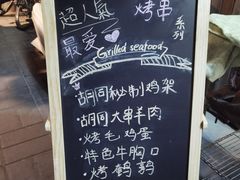 超人氣
烤串
系列
最爱
Grilled seafood
·胡同秘制鸡架
·胡同大串羊肉
·烤毛鸡蛋
·特色牛胸口
·烤鹌鹑